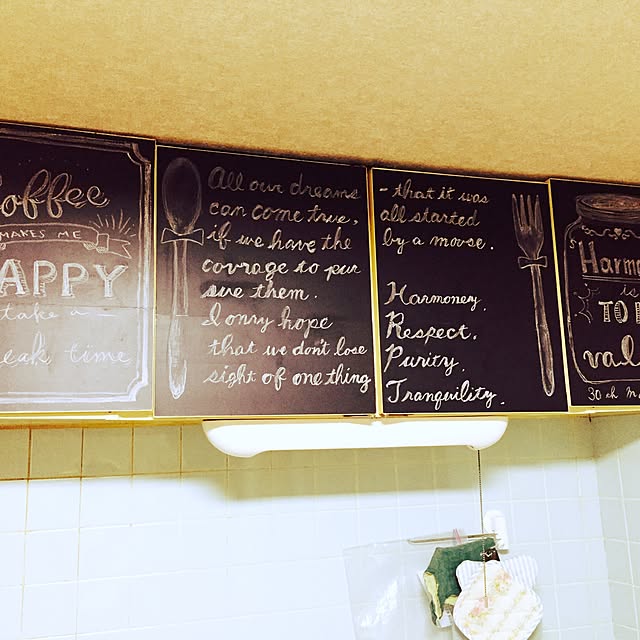 offee
MAKES ME
APPY
take a
eak time
All our dreams
can come true,
if we have the
courage to pur
sue them.
I onry hope
that we don't lose
sight of one thing
- that it was
all started
by a mouse.
Harmoney.
Respect.
Purity.
Tranquility.
Harmo
is
TO
val
30